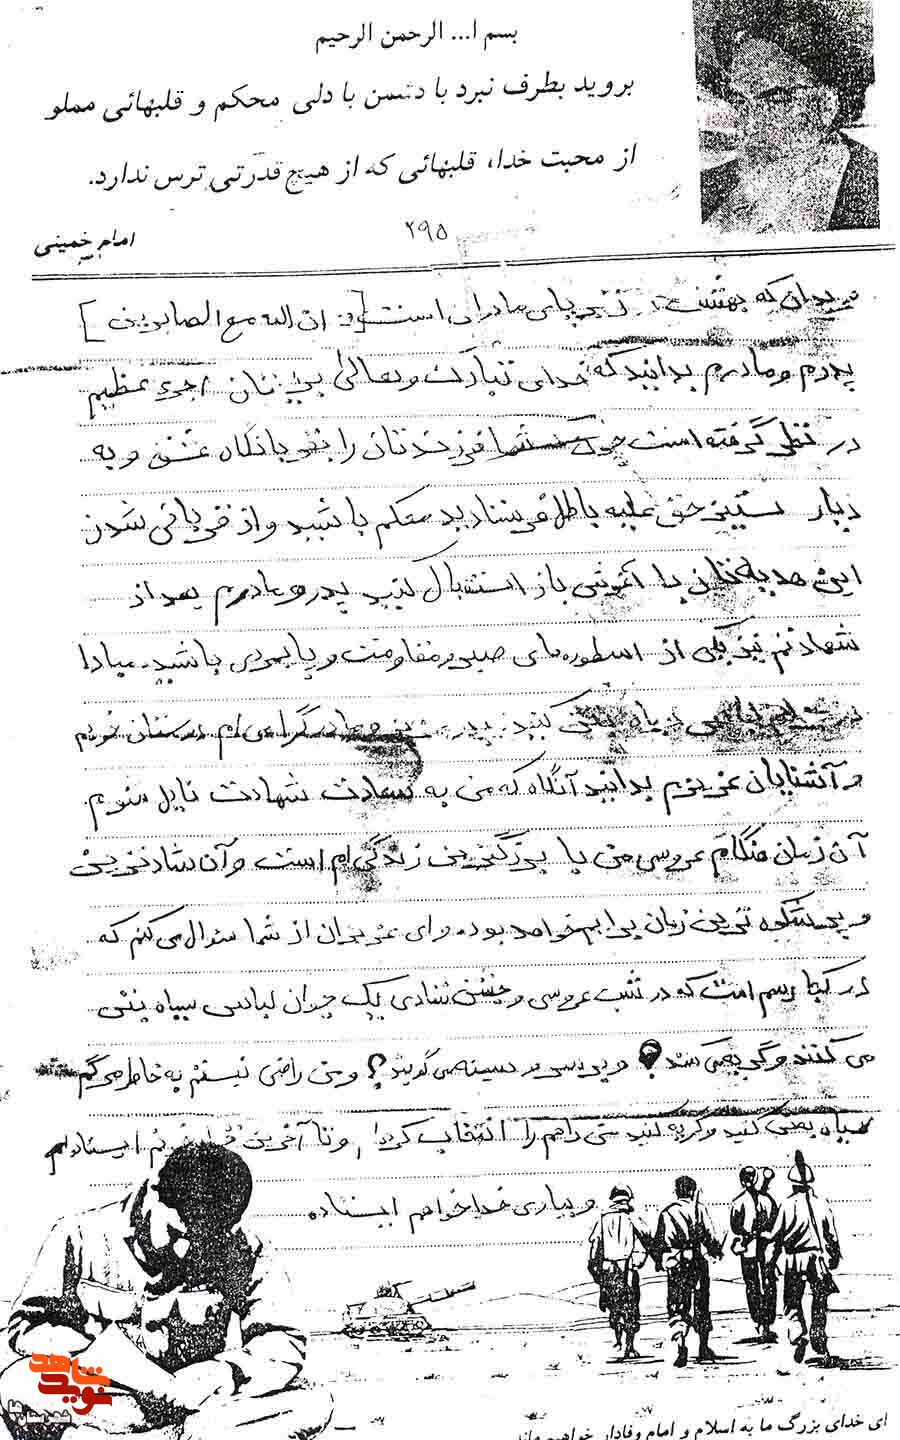 بسم ا... الرحمن الرحیم
بروید بطرف نبرد با دشمن با دلی محکم و قلبهائی مملو
از محبت خدا، قلبهائی که از هیچ قدرتی ترس ندارد.
۲۹۵
امام خمینی
بدان که بهشت زیر پای مادران است [و ان الله مع الصابرین]
پدرم و مادرم بدانید که خدای تبارک و تعالی برایتان اجری عظیم
در نظر گرفته است چون شما فرزندتان را با نگاه عشق و به
دیار ستیز حق علیه باطل فرستادید محکم باشید و از قربانی شدن
این هدیه‌تان با آغوش باز استقبال کنید پدر و مادرم بعد از
شهادتم نیز یکی از اسطوره‌های صبر و مقاومت و پایمردی باشید. مبادا
لباس سیاه بتن کنید. پدر و مادر گرامی‌ام دوستان خوبم
و آشنایان عزیزم بدانید آنگاه که من به سعادت شهادت نایل شوم.
آن زمان هنگام عروسی من با بزرگترین زندگی‌ام است و آن شادترین
و پرشکوه ترین زمان برایم خواهد بود. و ای عزیزان از شما سوال می کنم که
در کجا رسم است که در شب عروسی و جشن شادی یک جوان لباس سیاه بتن
می کنند و گریه می کنند؟ و بر سر و سینه می کوبند؟ و من راضی نیستم به خاطر مرگم
سیاه بتن کنید و گریه کنید من راهم را انتخاب کردم و تا آخرین ایستاده‌ام
و بیاری خدا خواهم ایستاد
ای خدای بزرگ ما به اسلام و امام وفادار خواهیم ماند
نوید شاهد
شهرستان ها